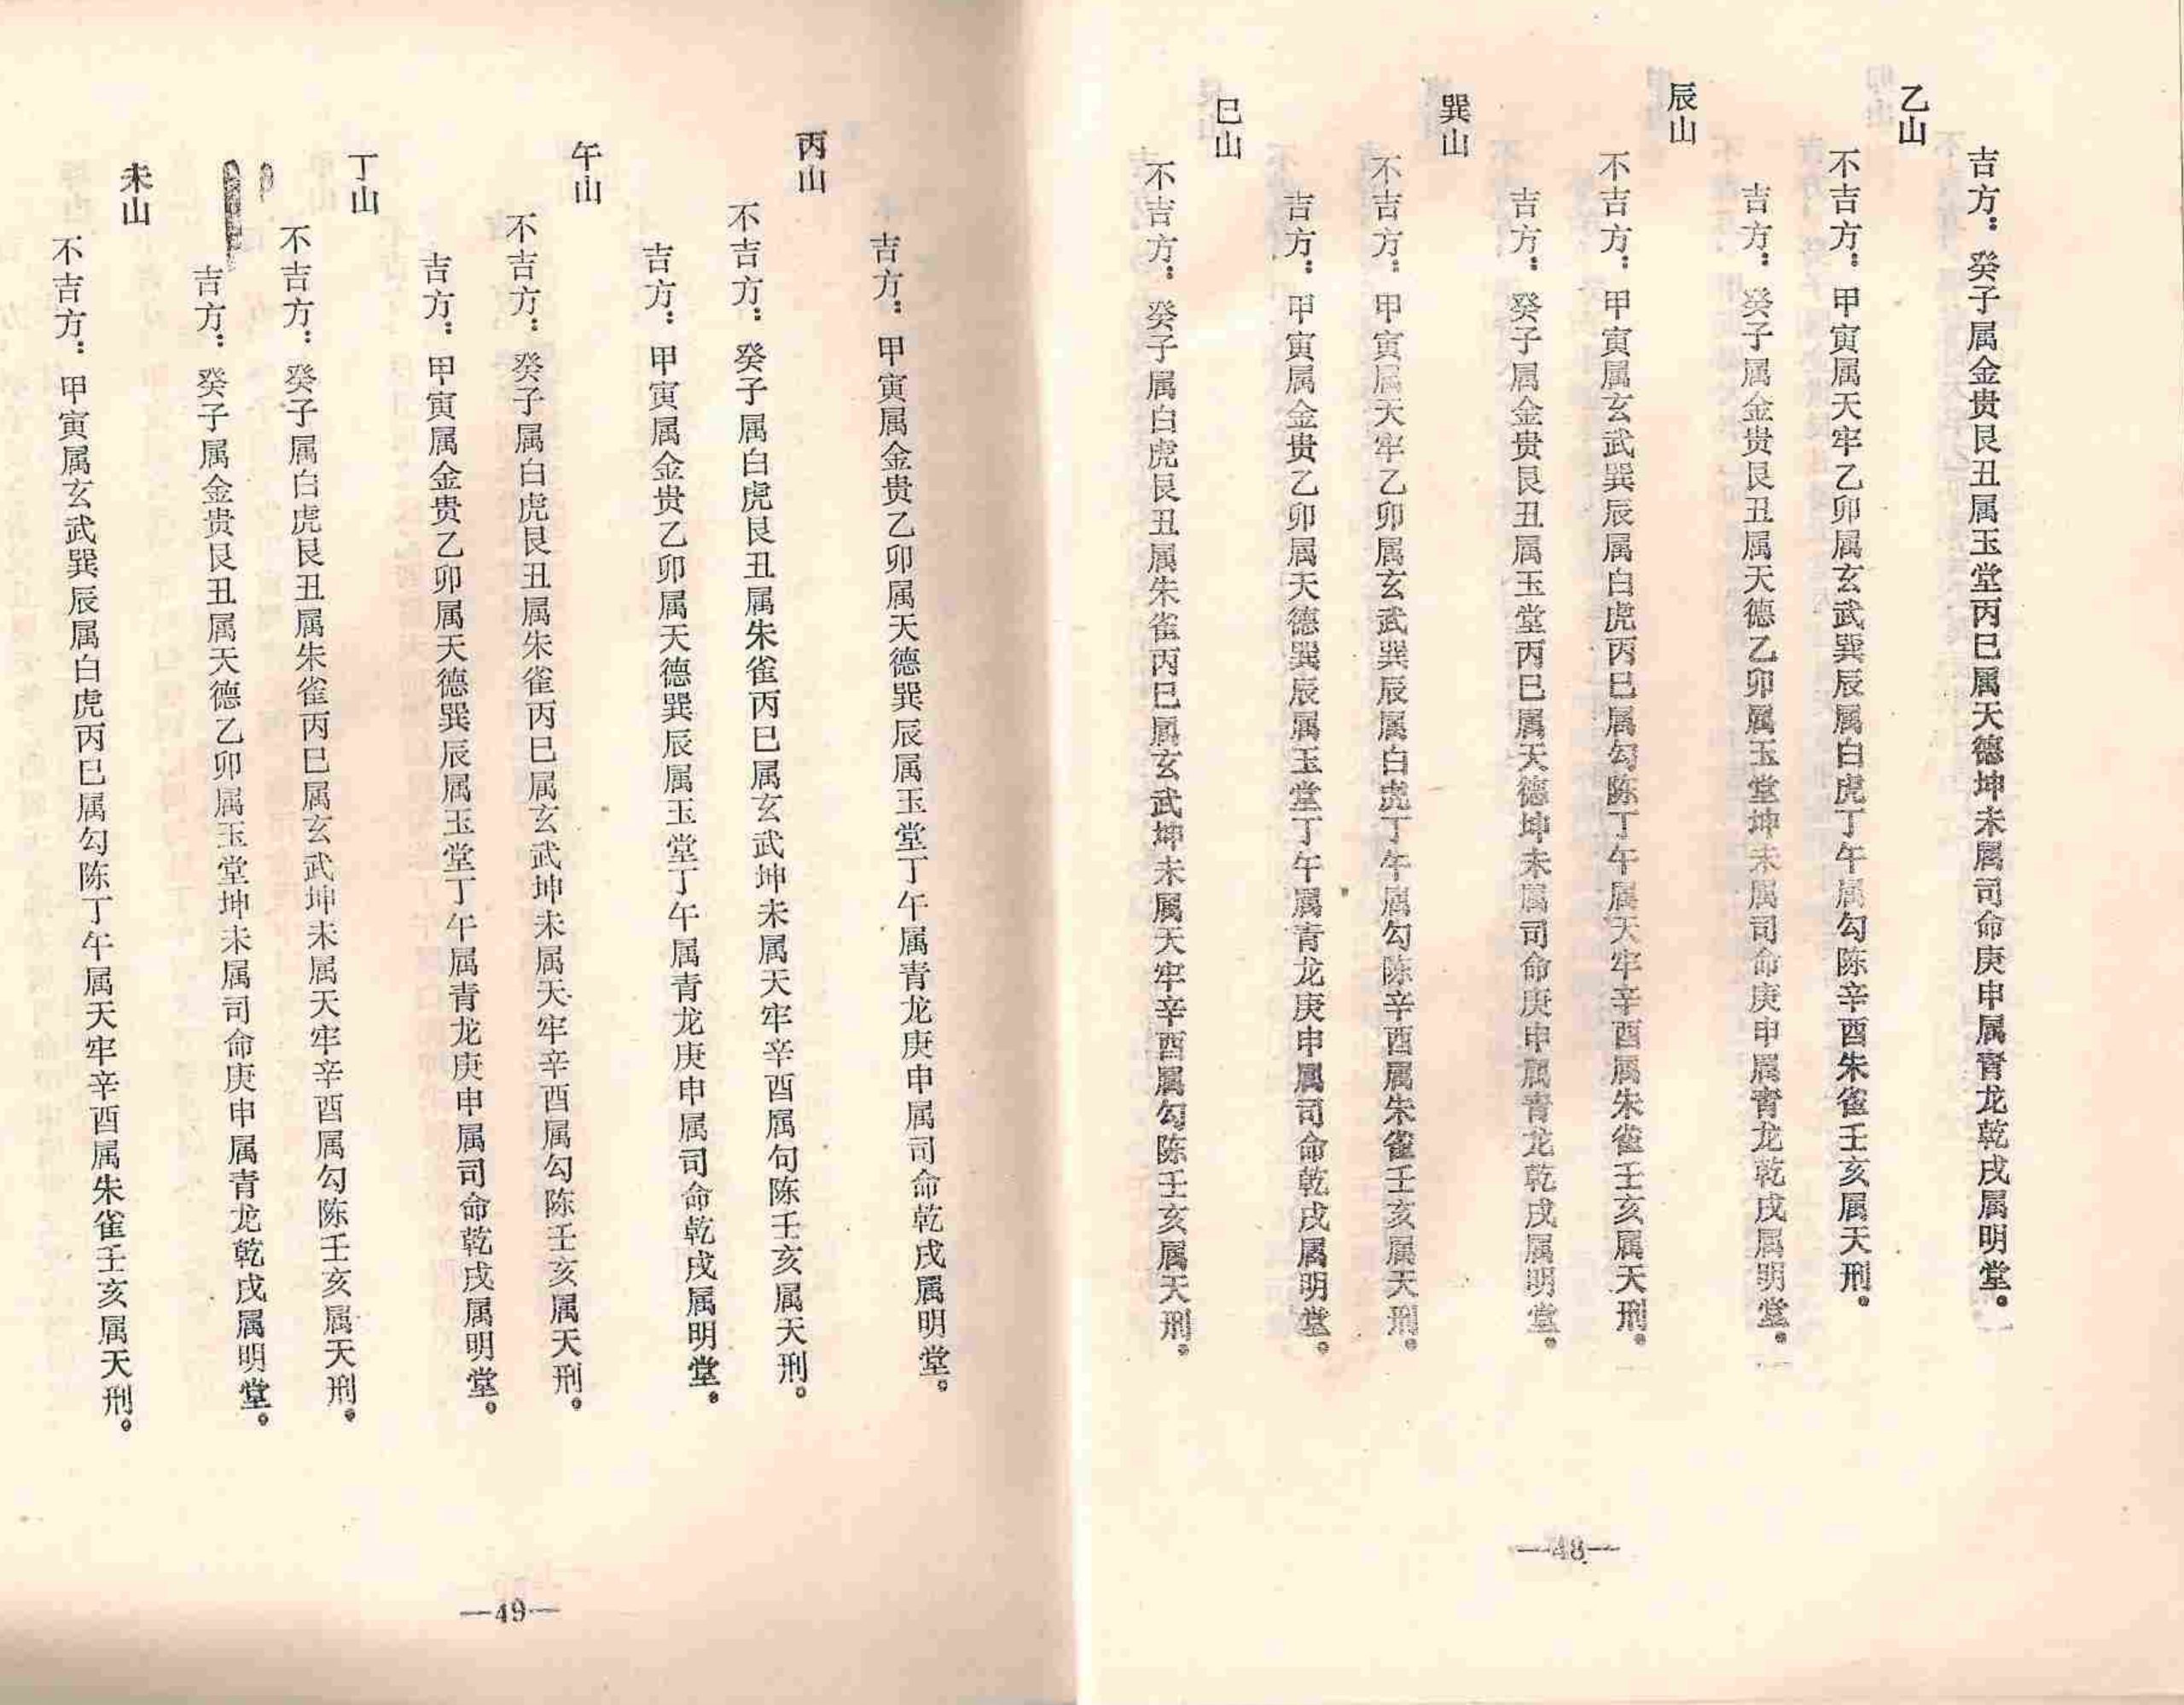 吉方：癸子属金贵艮丑属玉堂丙巳属天德坤未属司命庚申属青龙乾戌属明堂。
乙山
不吉方：甲寅属天牢乙卯属玄武巽辰属白虎丁午属勾陈辛酉朱雀壬亥属天刑。
吉方：癸子属金贵艮丑属天德乙卯属玉堂坤未属司命庚申属青龙乾戌属明堂。
辰山
不吉方：甲寅属玄武巽辰属白虎丙巳属勾陈丁午属天牢辛酉属朱雀壬亥属天刑。
吉方：癸子属金贵艮丑属玉堂丙巳属天德坤未属司命庚申属青龙乾戌属明堂。
巽山
不吉方：甲寅属天牢乙卯属玄武巽辰属白虎丁午属勾陈辛酉属朱雀壬亥属天刑。
吉方：甲寅属金贵乙卯属天德巽辰属玉堂丁午属青龙庚申属司命乾戌属明堂。
巳山
不吉方：癸子属白虎艮丑属朱雀丙巳属玄武坤未属天牢辛酉属勾陈壬亥属天刑。
—48—
吉方：甲寅属金贵乙卯属天德巽辰属玉堂丁午属青龙庚申属司命乾戌属明堂。
丙山
不吉方：癸子属白虎艮丑属朱雀丙巳属玄武坤未属天牢辛酉属句陈壬亥属天刑。
吉方：甲寅属金贵乙卯属天德巽辰属玉堂丁午属青龙庚申属司命乾戌属明堂。
午山
不吉方：癸子属白虎艮丑属朱雀丙巳属玄武坤未属天牢辛酉属勾陈壬亥属天刑。
吉方：甲寅属金贵乙卯属天德巽辰属玉堂丁午属青龙庚申属司命乾戌属明堂。
丁山
不吉方：癸子属白虎艮丑属朱雀丙巳属玄武坤未属天牢辛酉属勾陈壬亥属天刑。
吉方：癸子属金贵艮丑属天德乙卯属玉堂坤未属司命庚申属青龙乾戌属明堂。
未山
不吉方：甲寅属玄武巽辰属白虎丙巳属勾陈丁午属天牢辛酉属朱雀壬亥属天刑。
—49—